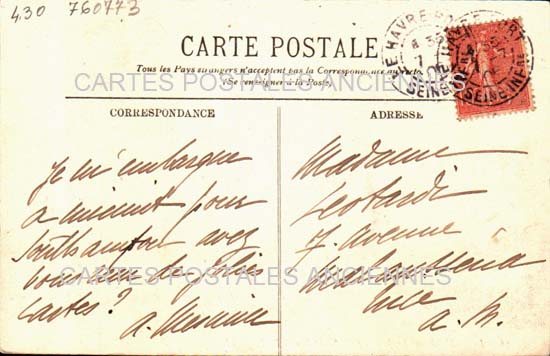 430 760773
LE HAVRE
SEINE INFRE
CARTE POSTALE
Tous les Pays étrangers n'acceptent pas la Correspondance au recto.
(Se renseigner à la Poste)
CARTES POSTALES ANCIENNES
CORRESPONDANCE
Je m'embarque
a minuit pour
Southampton avez
vous reçu de jolies
cartes?
ADRESSE
Madame
Leotardi
7. avenue
Nice
a. M.
CARTES POSTALES ANCIENNES